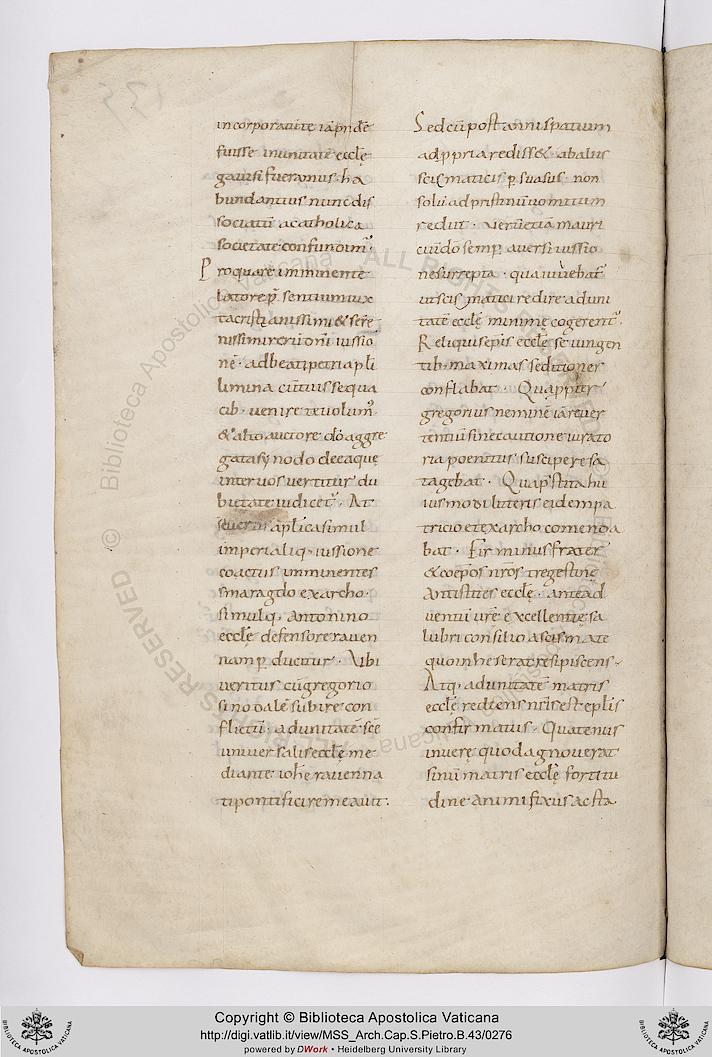 incorporauite iā pridē
fuisse inunitatē ecclę
gauisi fueramus· ha
bundantius nunc dis
sociatū acatholica
societate confundimr̄·
Proqua re imminente
latore p̄sentium iux
tacristianissimi & sere
nissimi rerū dn̄i iussio
nē· adbeati petri apli
limina cūtuis sequa
cib· uenire te uolum̄·
& alto auctore dō aggre
gata synodo de ea quę
inter uos uertitur du
bietate iudicet̄· At
seuerus aplica simul
imperialiq· iussione
coactus imminentes
smaragdo exarcho·
simulq· antonino
ecclę defensore rauen
nam ꝑducitur· Vbi
ueritus cūgregorio
sinodale subire con
flictū· adunitatē scę
uniuersalis ecclę me
diante ioh̄e rauenna
ti pontifici remeauit·
Sed cū post anni spatium
adpropria rediss& abaliis
scismaticis ꝑsuasus· non
solū adpristinū uomitum
rediit· uerū etiā mauri
cii dō semꝑ auersi iussio
nesurrepta· qua iuuebat̄
ut scismatici redire aduni
tatē ecclę minime cogerent̄·
Reliquis epis ecclę se iungen
tib· maximas seditiones
conflabat· Quappter
gregorius neminē iā reuer
tentiū sine cautione iurato
ria poenitus suscipere sa
tagebat· Quapstita hu
iusmodi litteris eidem pa
tricio et exarcho comenda
bat· Firminus frater
& coep̄os n̄ros tregestinę
Antisties ecclę· ante ad
uentū ur̄ę excellentię sa
lubri consilio ascismate
quo inheserat resipiscens·
Atq· adunitatē matris
ecclę rediens n̄ris est eplis
confirmatus· Quatenus
inuere quod agnouerat
sinū matris ecclę fortitu
dine animi fixus ac sta
Copyright © Biblioteca Apostolica Vaticana
http://digi.vatlib.it/view/MSS_Arch.Cap.S.Pietro.B.43/0276
powered by DWork • Heidelberg University Library